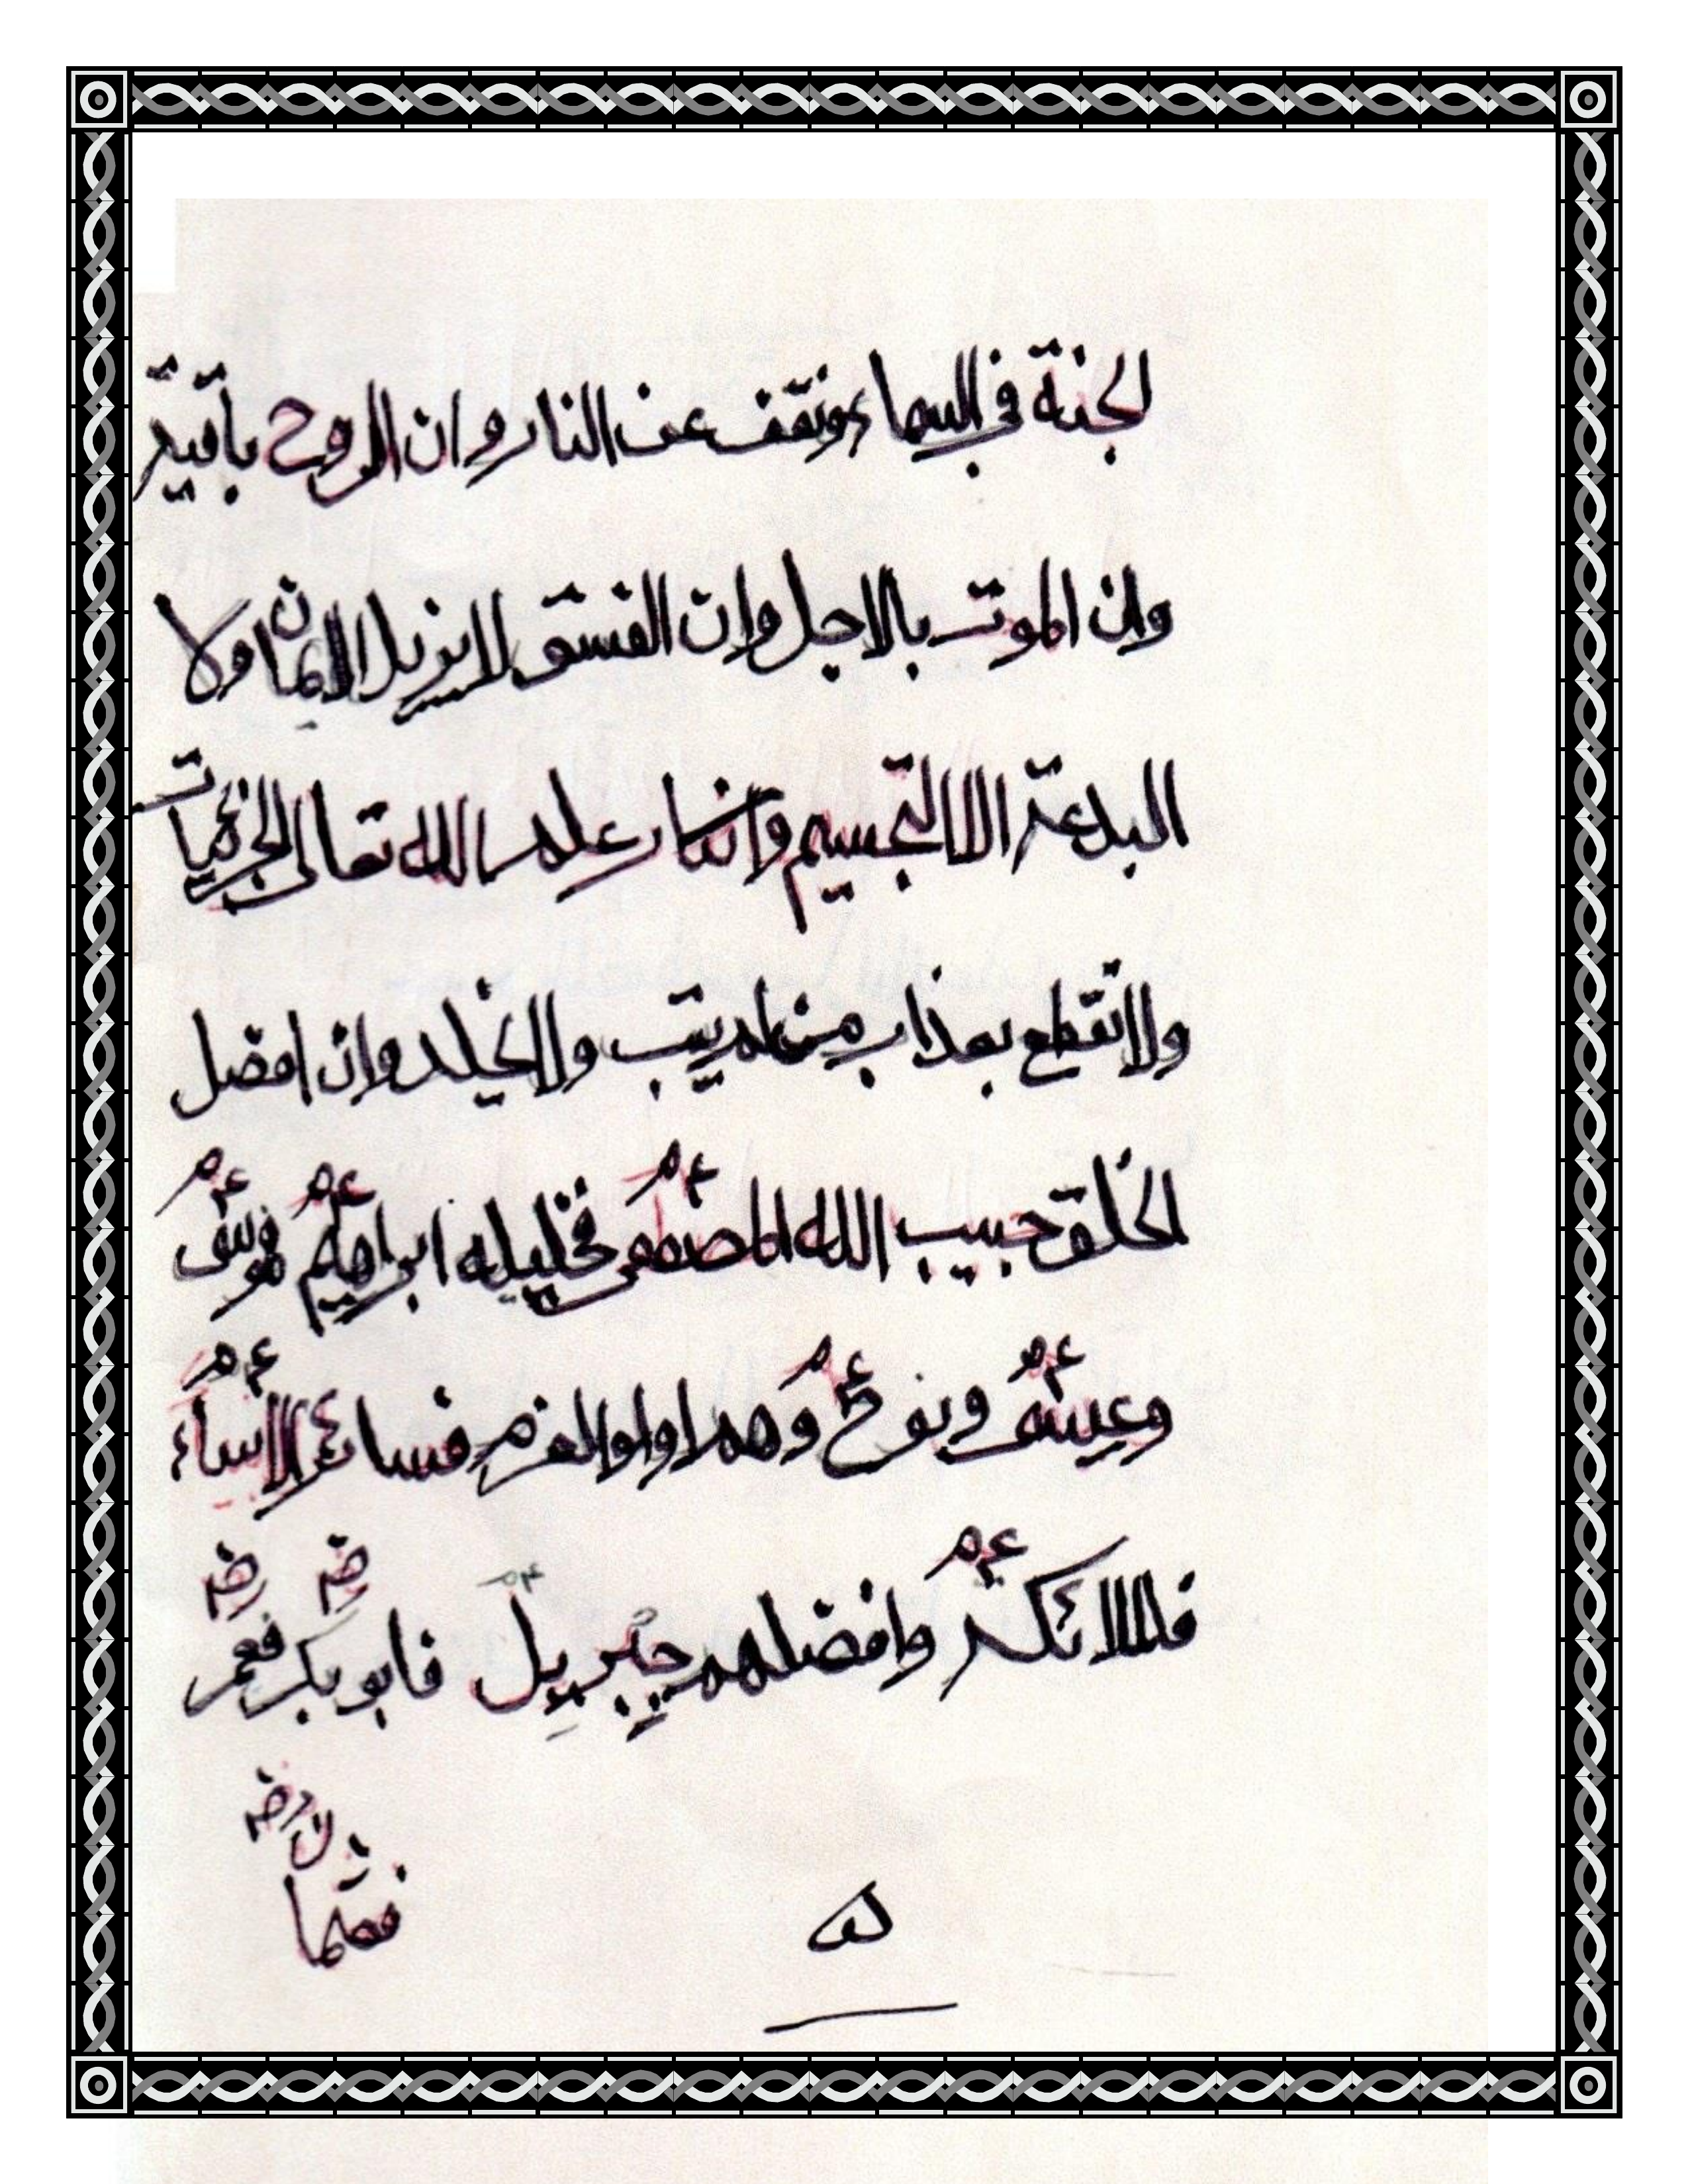 لجنة في السماء ونقف عن النار وان الروح باقية
وان الموت بالاجل وان الفسق لا يزيل الايمان ولا
البدعة الا التجسيم وانكار علم الله تعالى الجزئيات
ولا نقطع بعذاب من لم يتب ولا يخلد وان افضل
الخلق حبيب الله المصطفى عم فخليله ابراهيم عم فموسى عم
وعيسى عم ونوح عم وهم اولو العزم فسائر الانبياء عم
فالملائكة عم وافضلهم جبريل عم فابو بكر رضه فعمر رضه
فعثمان رضه